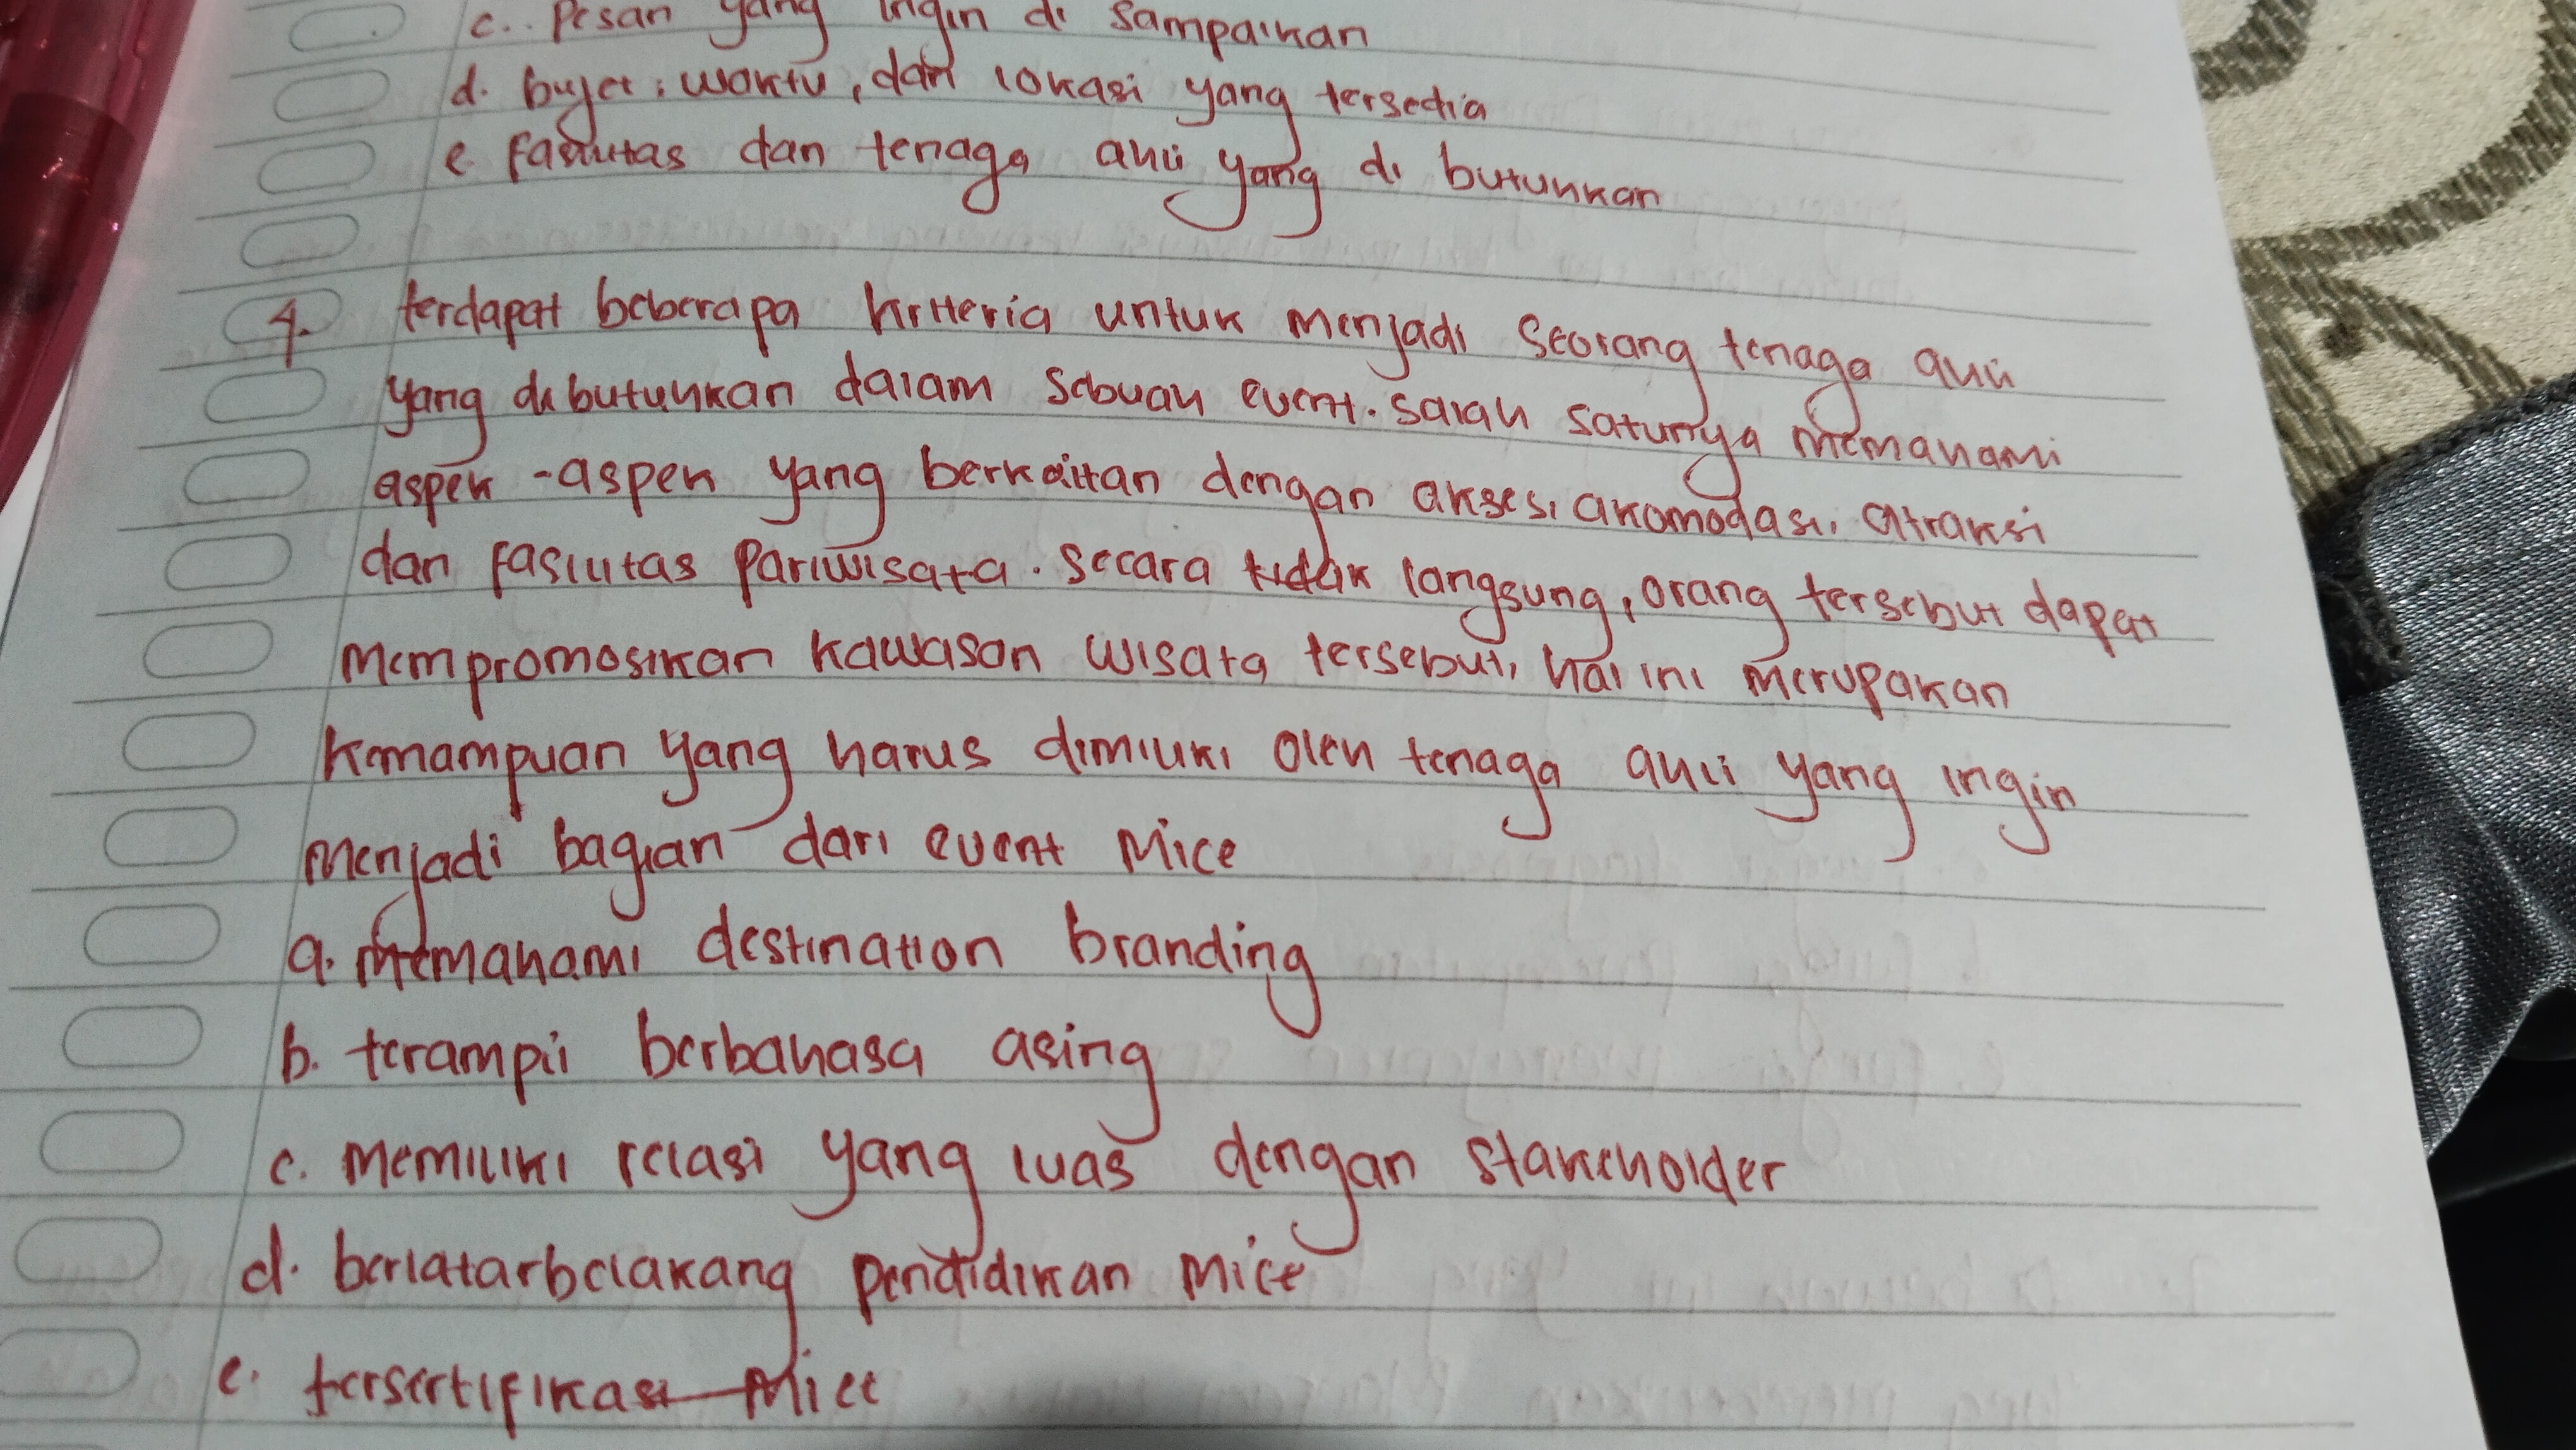 c. Pesan yang ingin di sampaikan
d. bujet, waktu, dan lokasi yang tersedia
e. Fasilitas dan tenaga ahli yang di butuhkan
4. terdapat beberapa kriteria untuk menjadi seorang tenaga ahli
yang dibutuhkan dalam sebuah event. salah satunya memahami
aspek-aspek yang berkaitan dengan akses, akomodasi, atraksi
dan fasilitas pariwisata. secara tidak langsung, orang tersebut dapat
mempromosikan kawasan wisata tersebut, hal ini merupakan
kemampuan yang harus dimiliki oleh tenaga ahli yang ingin
menjadi bagian dari event Mice
a. memahami destination branding
b. terampil berbahasa asing
c. memiliki relasi yang luas dengan stakeholder
d. berlatarbelakang pendidikan Mice
e. tersertifikasi Mice